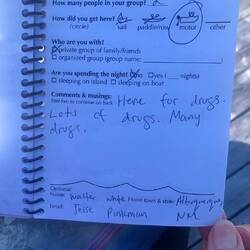 How many people in your group? 2
How did you get here?
(circle) sail paddle/row motor other
Who are you with?
private group of family/friends
organized group (group name:
Are you spending the night? no yes ( nights)
sleeping on island sleeping on boat
Comments & musings: Here for drugs.
feel free to continue on back
Lots of drugs. Many
drugs.
Optional:
Name: Walter White Home town & state: Albuquerque,
Email: Jesse Pinkman NM